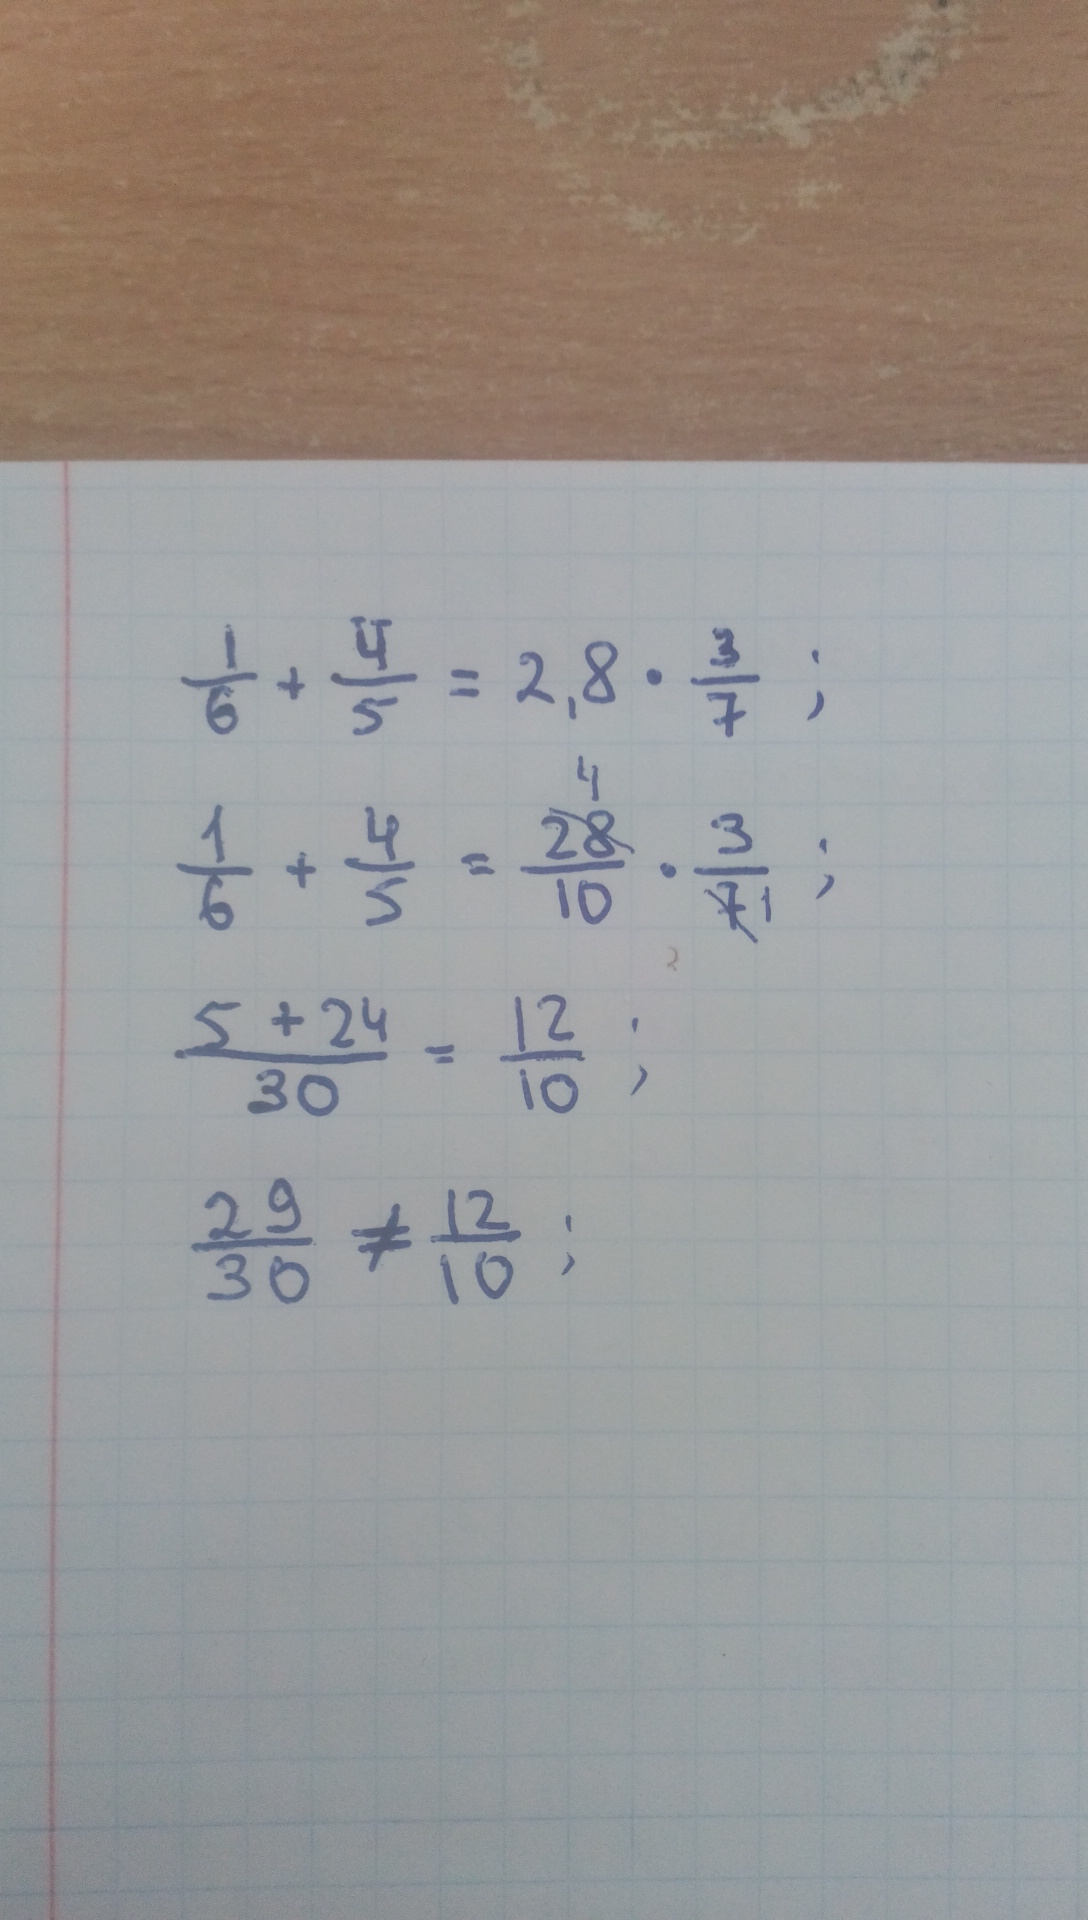 1/6 + 4/5 = 2,8 · 3/7 ;
1/6 + 4/5 = 28/10 4 · 3/7 1 ;
(5 + 24)/30 = 12/10 ;
29/30 ≠ 12/10 ;